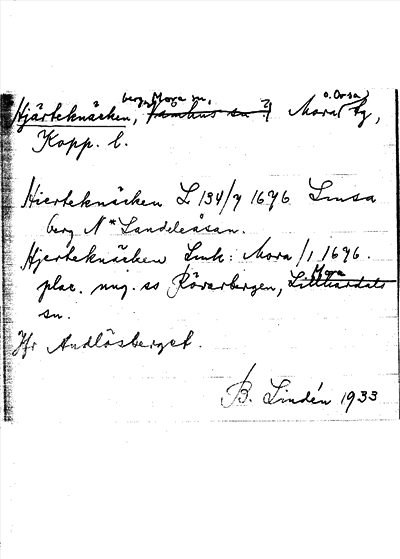 Hjärteknäcken, berg, Mora sn, Våmhus sn? Mora o. Orsa tg,
Kopp. l.
Hierteknäcken L 134/7 1696 Limsa
berg N * Landeleåsan.
Hjerteknäcken Link: Mora /1 1696.
plac. nug. ss Rövarbergen, Mora Lillhärdals
sn.
Jfr Andlösberget.
B. Lindén 1933